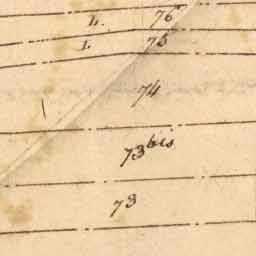 L. 76
L. 75
74
73 bis
73